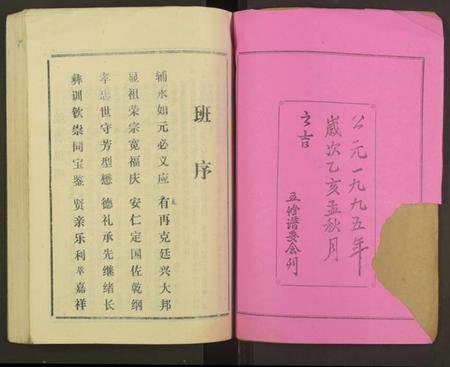 公元一九九五年
歲次乙亥孟秋月
之吉
五修谱委会刊
班序
辅永如元必义应 有再克廷兴大邦
显祖荣宗宽福庆 安仁定国佐乾纲
孝忠世守芳型懋 德礼承先继绪长
彝训钦崇同宝鉴 贤亲乐利萃嘉祥